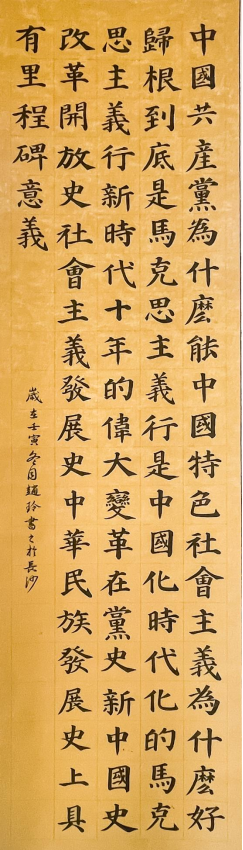 中國共産黨為什麽能中國特色社會主義為什麽好
歸根到底是馬克思主義行是中國化時代化的馬克
思主義行新時代十年的偉大變革在黨史新中國史
改革開放史社會主義發展史中華民族發展史上具
有里程碑意義
歲在壬寅冬月趙玲書之於長沙